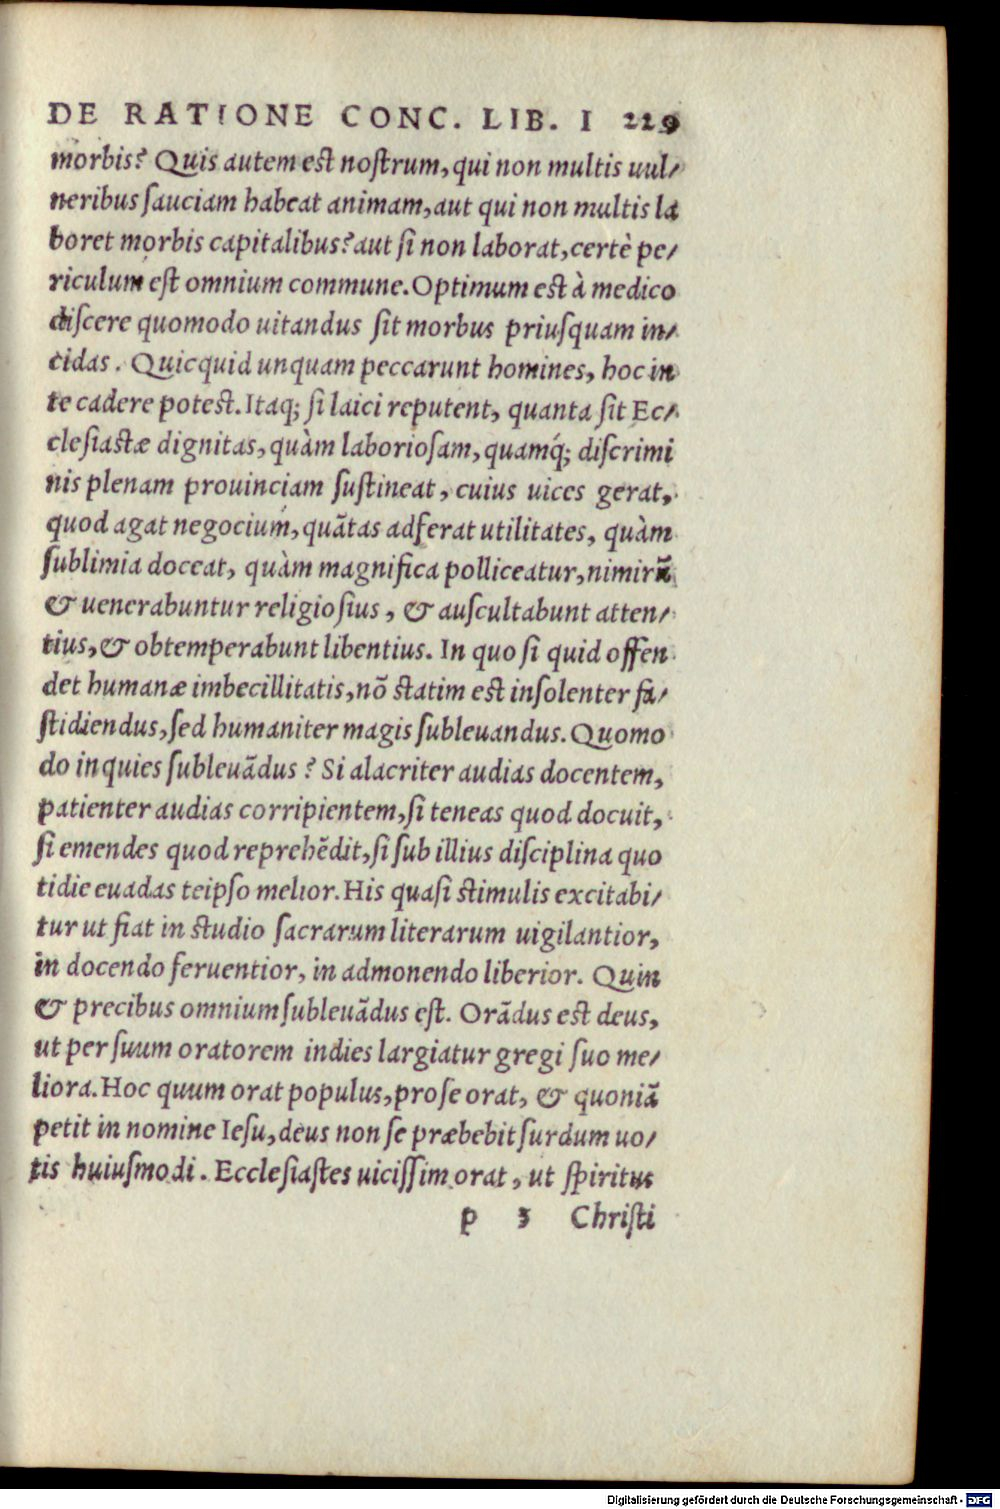 DE RATIONE CONC. LIB. I 229
morbis? Quis autem est nostrum, qui non multis uul/
neribus sauciam habeat animam, aut qui non multis la
boret morbis capitalibus? aut si non laborat, certè pe/
riculum est omnium commune. Optimum est à medico
discere quomodo uitandus sit morbus priusquam in/
cidas. Quicquid unquam peccarunt homines, hoc in
te cadere potest. Itaq; si laici reputent, quanta sit Ec/
clesiastæ dignitas, quàm laboriosam, quamq́; discrimi
nis plenam prouinciam sustineat, cuius uices gerat,
quod agat negocium, quãtas adferat utilitates, quàm
sublimia doceat, quàm magnifica polliceatur, nimirũ
& uenerabuntur religiosius, & auscultabunt atten/
tius, & obtemperabunt libentius. In quo si quid offen
det humanæ imbecillitatis, nõ statim est insolenter fa/
stidiendus, sed humaniter magis subleuandus. Quomo
do inquies subleuãdus? Si alacriter audias docentem,
patienter audias corripientem, si teneas quod docuit,
si emendes quod reprehẽdit, si sub illius disciplina quo
tidie euadas teipso melior. His quasi stimulis excitabi/
tur ut fiat in studio sacrarum literarum uigilantior,
in docendo feruentior, in admonendo liberior. Quin
& precibus omnium subleuãdus est. Orãdus est deus,
ut per suum oratorem indies largiatur gregi suo me/
liora. Hoc quum orat populus, pro se orat, & quoniã
petit in nomine Iesu, deus non se præbebit surdum uo/
tis huiusmodi. Ecclesiastes uicissim orat, ut spiritus
p 3 Christi
Digitalisierung gefördert durch die Deutsche Forschungsgemeinschaft - DFG